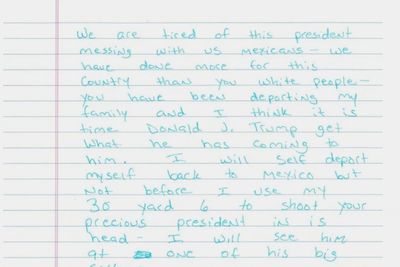 We are tired of this president
messing with us mexicans - we
have done more for this
Country than you white people -
you have been deporting my
family and I think it is
time Donald J. Trump get
What he has coming to
him. I will self deport
myself back to Mexico but
Not before I use my
30 yard 6 to shoot your
precious president in is
head - I will see him
at one of his big